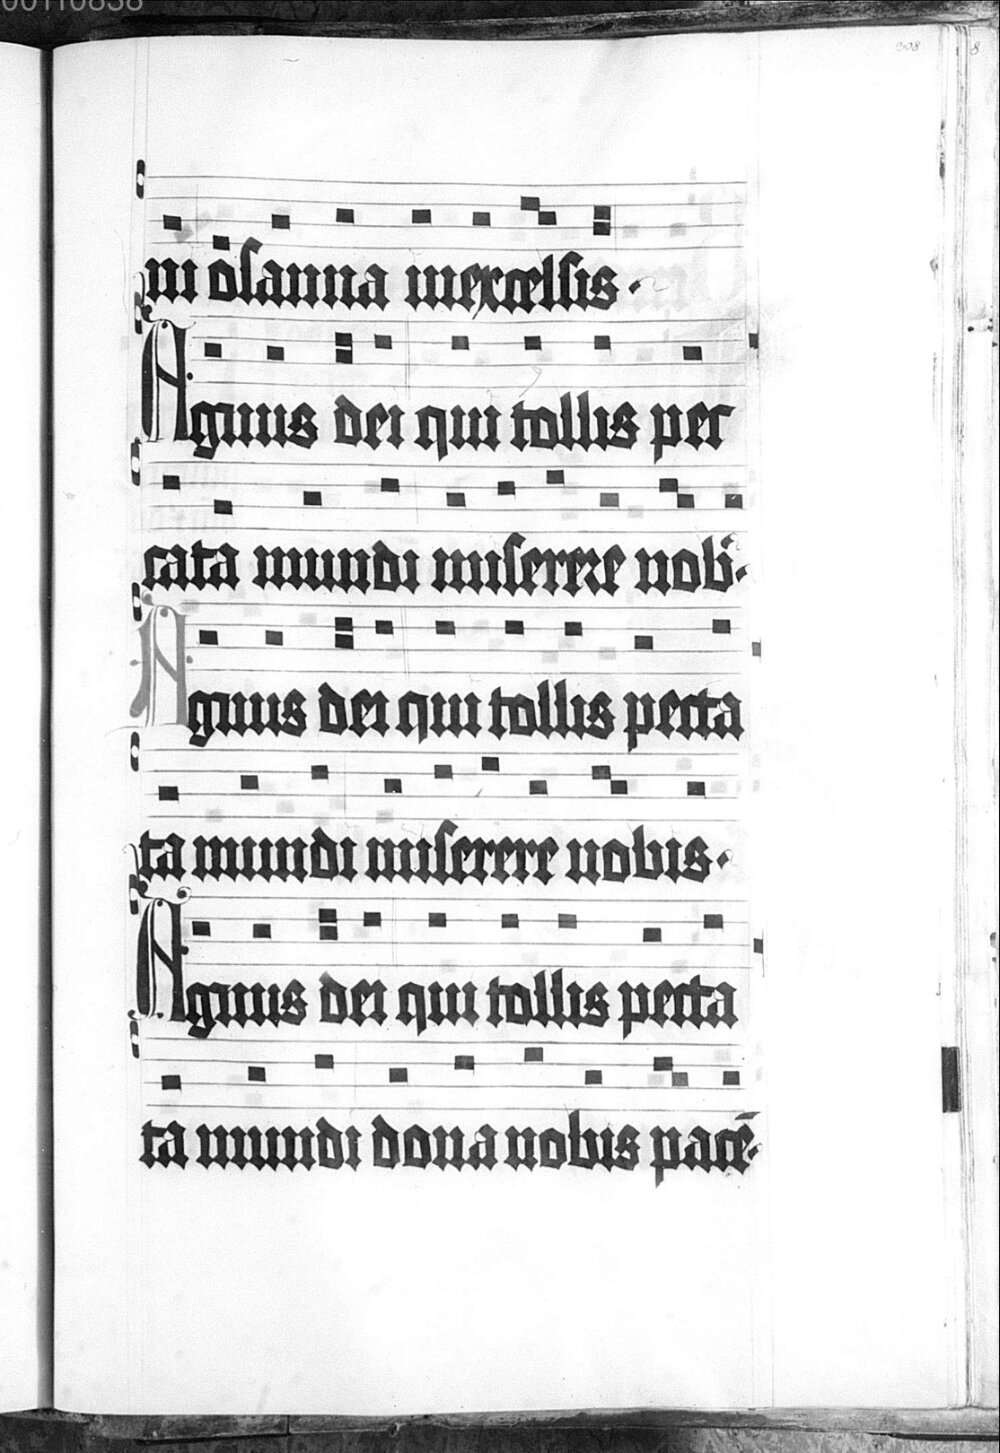 00110838
308
8
ni osanna inexcelsis.
Agnus dei qui tollis pec
cata mundi miserere nobis.
Agnus dei qui tollis pecca
ta mundi miserere nobis.
Agnus dei qui tollis pecca
ta mundi dona nobis pacē.